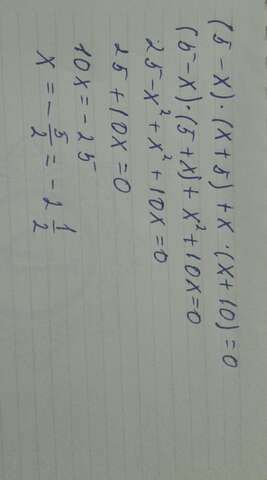 (5-x)·(x+5)+x·(x+10)=0
(5-x)·(5+x)+x²+10x=0
25-x²+x²+10x=0
25+10x=0
10x=-25
x=-5/2=-2 1/2